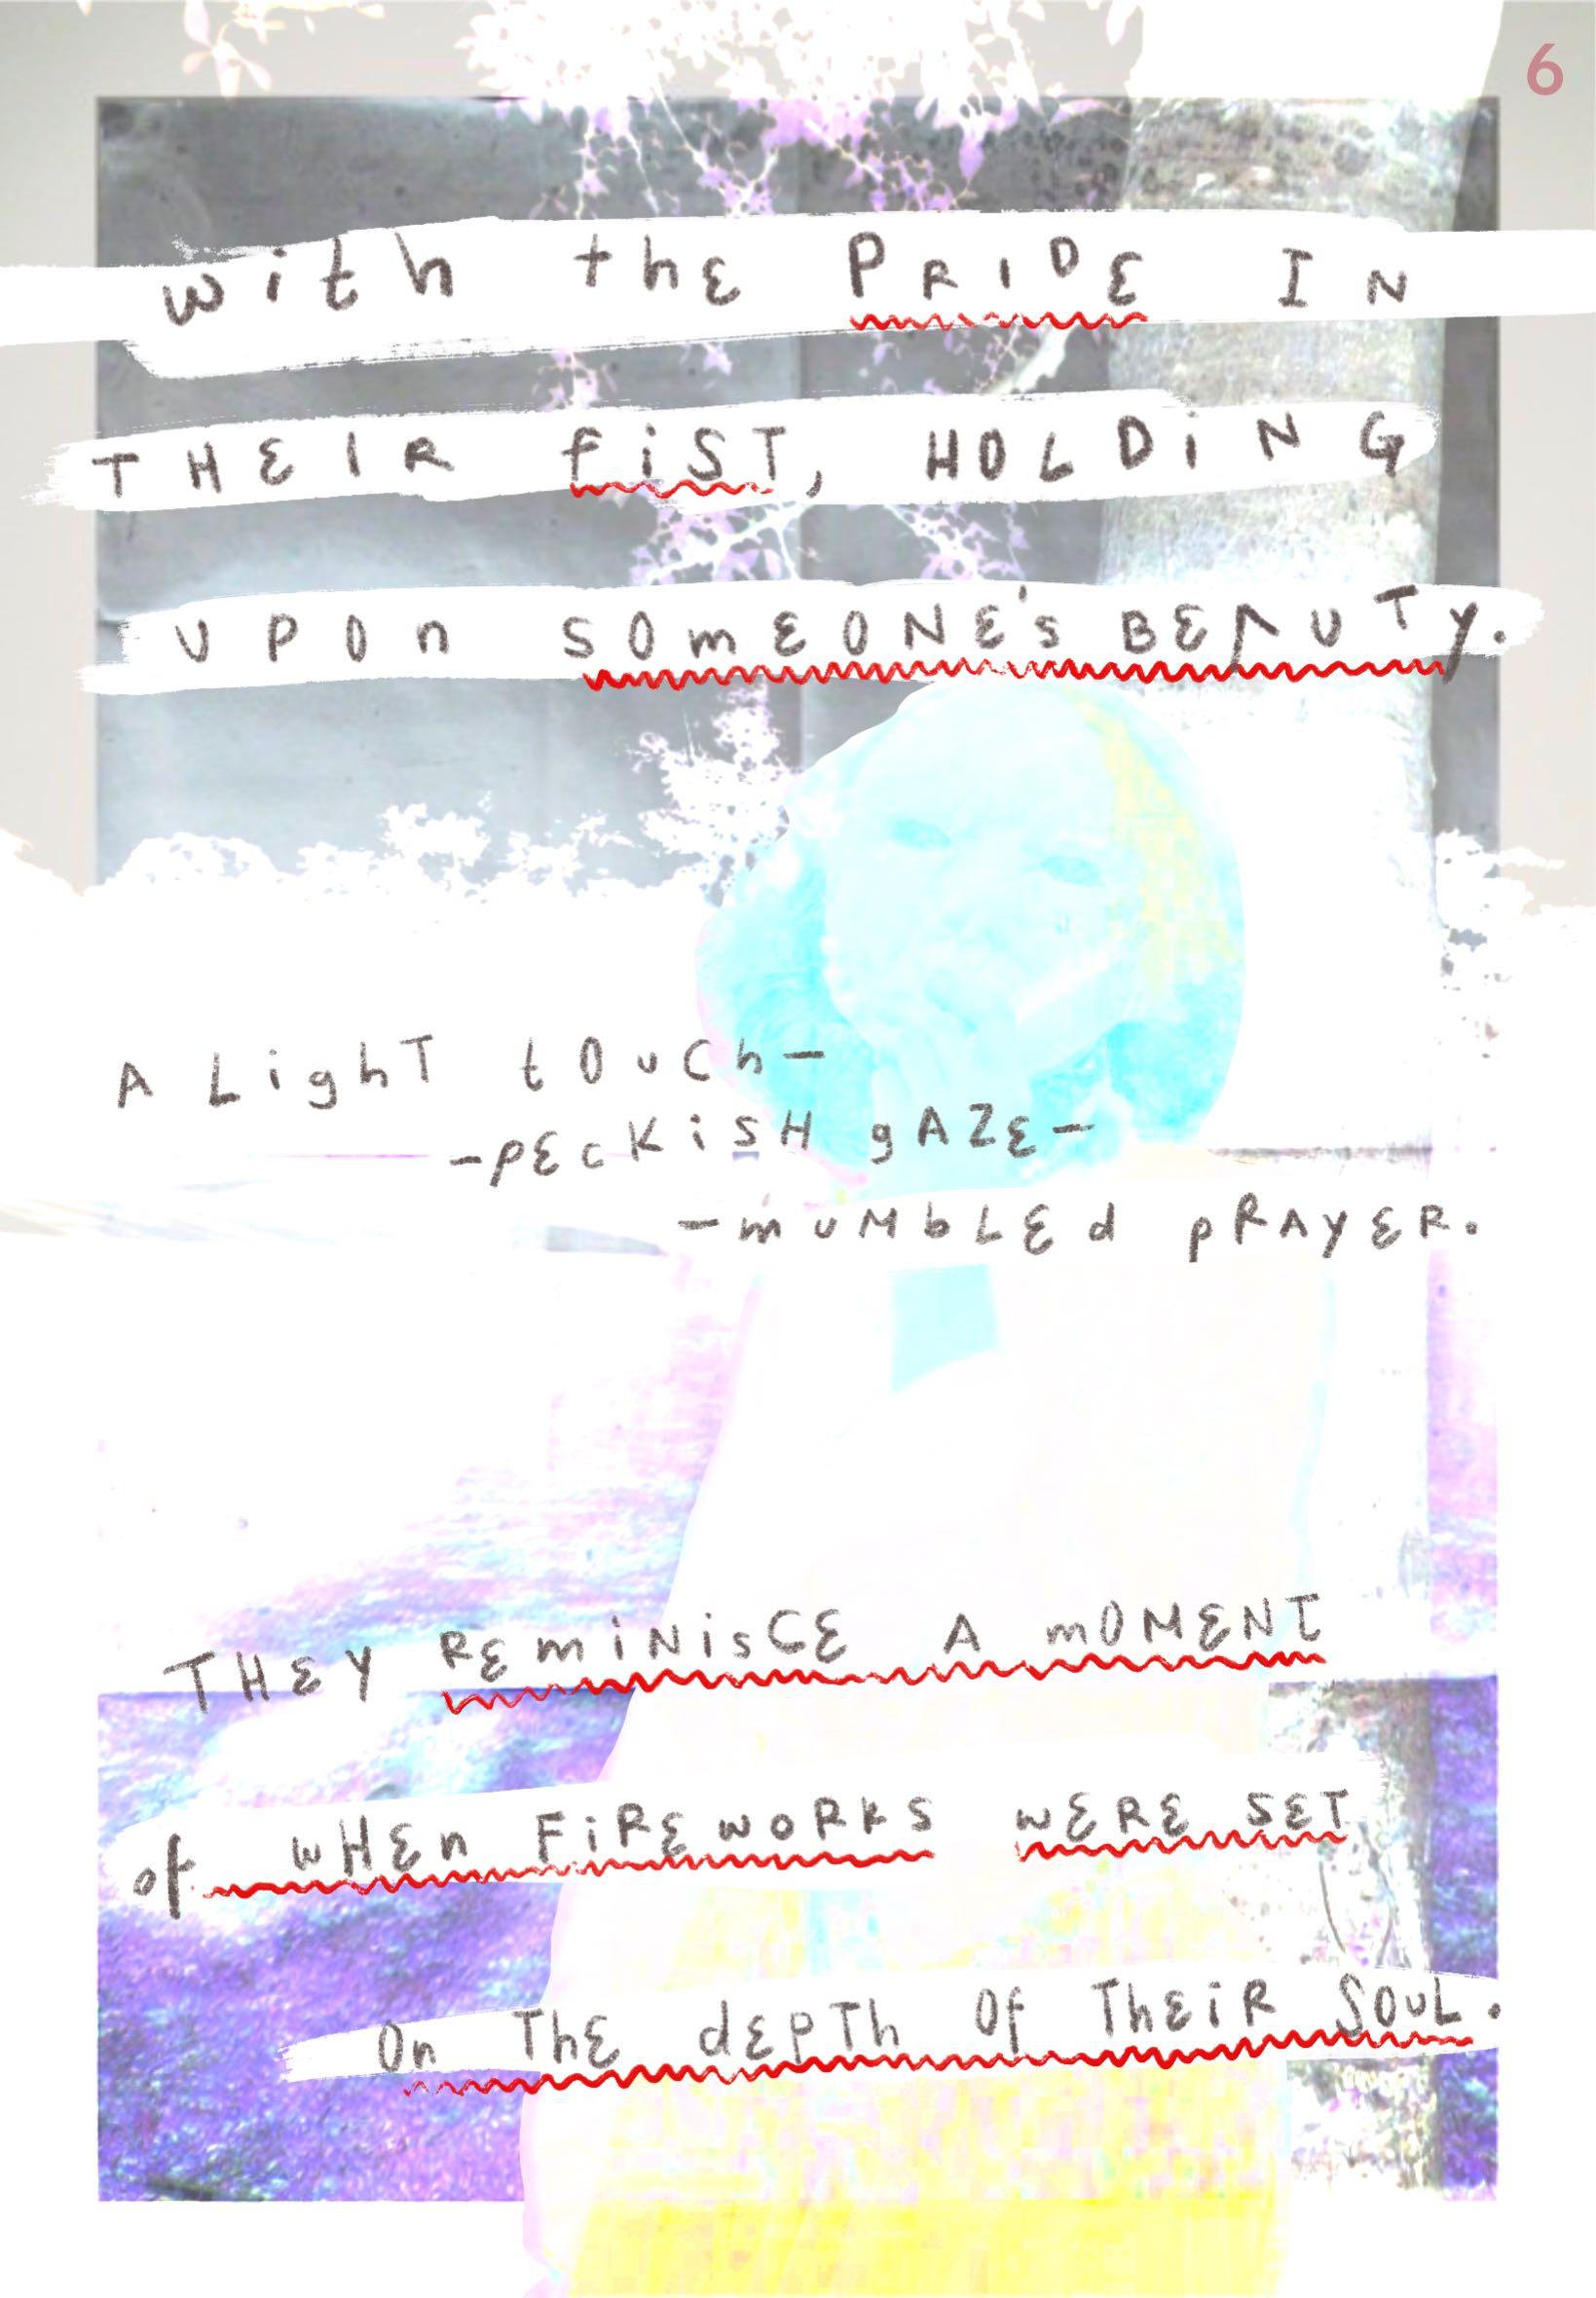 6
with thE PRIDE IN
THEIR fiST, HOLDiNG
UPOn SOmEONE's BEAUTY.
A LighT tOuCh-
-PEcKiSH gAZE-
-muMbLEd pRAyER.
THEY REmiNisCE A mOMENT
of wHEn FiREwoRKS wERE SET
On ThE dEPTh Of ThEiR SOuL.